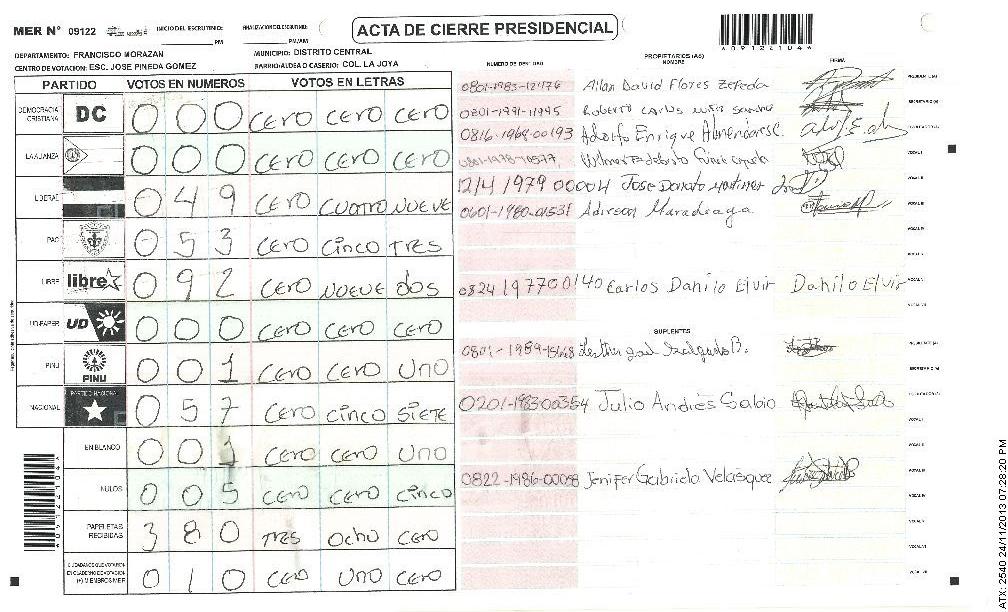 MER N° 09122 INICIO DEL ESCRUTINIO: PM FINALIZACION DEL ESCRUTINIO: PM/AM
ACTA DE CIERRE PRESIDENCIAL
DEPARTAMENTO: FRANCISCO MORAZAN MUNICIPIO: DISTRITO CENTRAL
CENTRO DE VOTACION: ESC. JOSE PINEDA GOMEZ BARRIO/ALDEA O CASERIO: COL. LA JOYA
NUMERO DE IDENTIDAD PROPIETARIOS (AS) NOMBRE FIRMA
PARTIDO VOTOS EN NUMEROS VOTOS EN LETRAS
DEMOCRACIA CRISTIANA DC 0 0 0 CERO CERO CERO
LA ALIANZA 0 0 0 CERO CERO CERO
LIBERAL 0 4 9 CERO CUATRO NUEVE
PAC 0 5 3 CERO CINCO TRES
LIBRE libre 0 9 2 CERO NUEVE DOS
UD-FAPER UD 0 0 0 CERO CERO CERO
PINU PINU 0 0 1 CERO CERO UNO
NACIONAL PARTIDO NACIONAL 0 5 7 CERO CINCO SIETE
EN BLANCO 0 0 1 CERO CERO UNO
NULOS 0 0 5 CERO CERO CINCO
PAPELETAS RECIBIDAS 3 8 0 TRES OCHO CERO
CIUDADANOS QUE VOTARON EN CUADERNO DE VOTACION (+) MIEMBROS MER 0 1 0 CERO UNO CERO
0801-1983-12176 Allan David Flores Zepeda
0801-1991-11995 Roberto Carlos
0816-1968-00193 Adolfo Enrique
1214 1979 00004 Jose Donato Martinez
0601-1980-01531 Adirson Maradiaga
0824 1977 00140 Carlos Danilo Elvir Danilo Elvir
SUPLENTES
0801-1989-15168
0201-198300354 Julio Andrés Sabio
0822-1986-00098 Jenifer Gabriela Velasquez
ATX: 2540 24/11/2013 07:28:20 PM